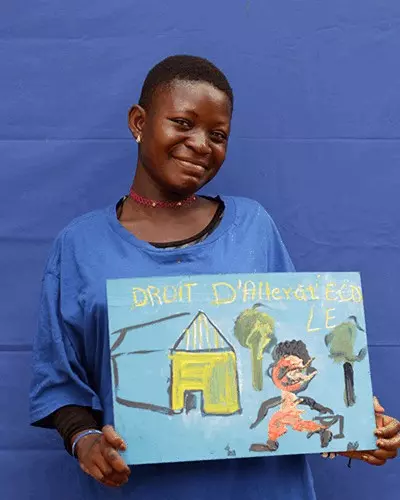 DROIT D'Allerat'ECO
LE